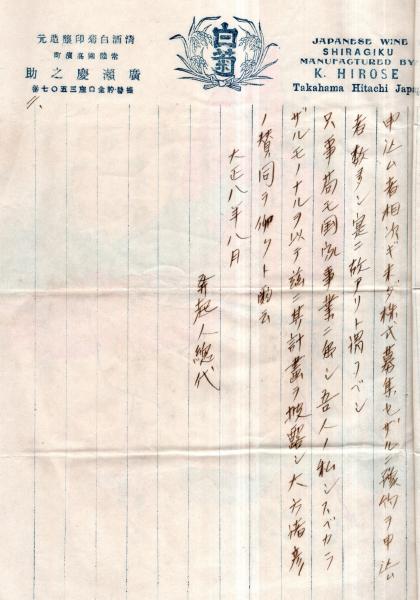 清酒白菊印醸造元
常陸國高濱町
廣瀬慶之助
振替貯金口座三五〇七番
白菊
JAPANESE WINE
SHIRAGIKU
MANUFACTURED BY
K. HIROSE
Takahama Hitachi Japa
申込ム者相次ギ未ダ株式募集セザルニ予約ヲ申込ム
者数多シ実ニ故アリト謂フベシ
只事苟モ国家事業ニ属シ吾人ノ私シスベカラ
ザルモノナルヲ以テ茲ニ其計畫ヲ披露シ大方諸彦
ノ賛同ヲ仰クト云
大正八年八月
発起人總代